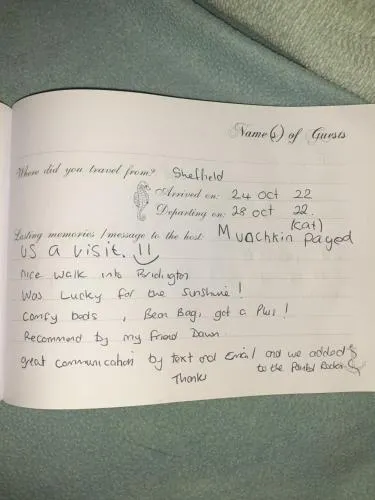 Name(s) of Guests
Where did you travel from? Sheffield
Arrived on: 24 Oct 22
Departing on: 28 Oct 22.
Lasting memories / message to the host: Munchkin (cat) payed
us a visit. !!
nice walk into Bridlington
Was Lucky for the sunshine!
Comfy beds, Bean Bag, got a Plus!
Recommend by my friend Dawn
great communication by text and Email and we added
to the Painted Rocks
Thanks